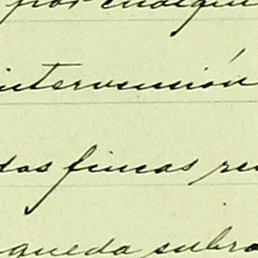 por cualqui
intervención
das fincas re
queda subro